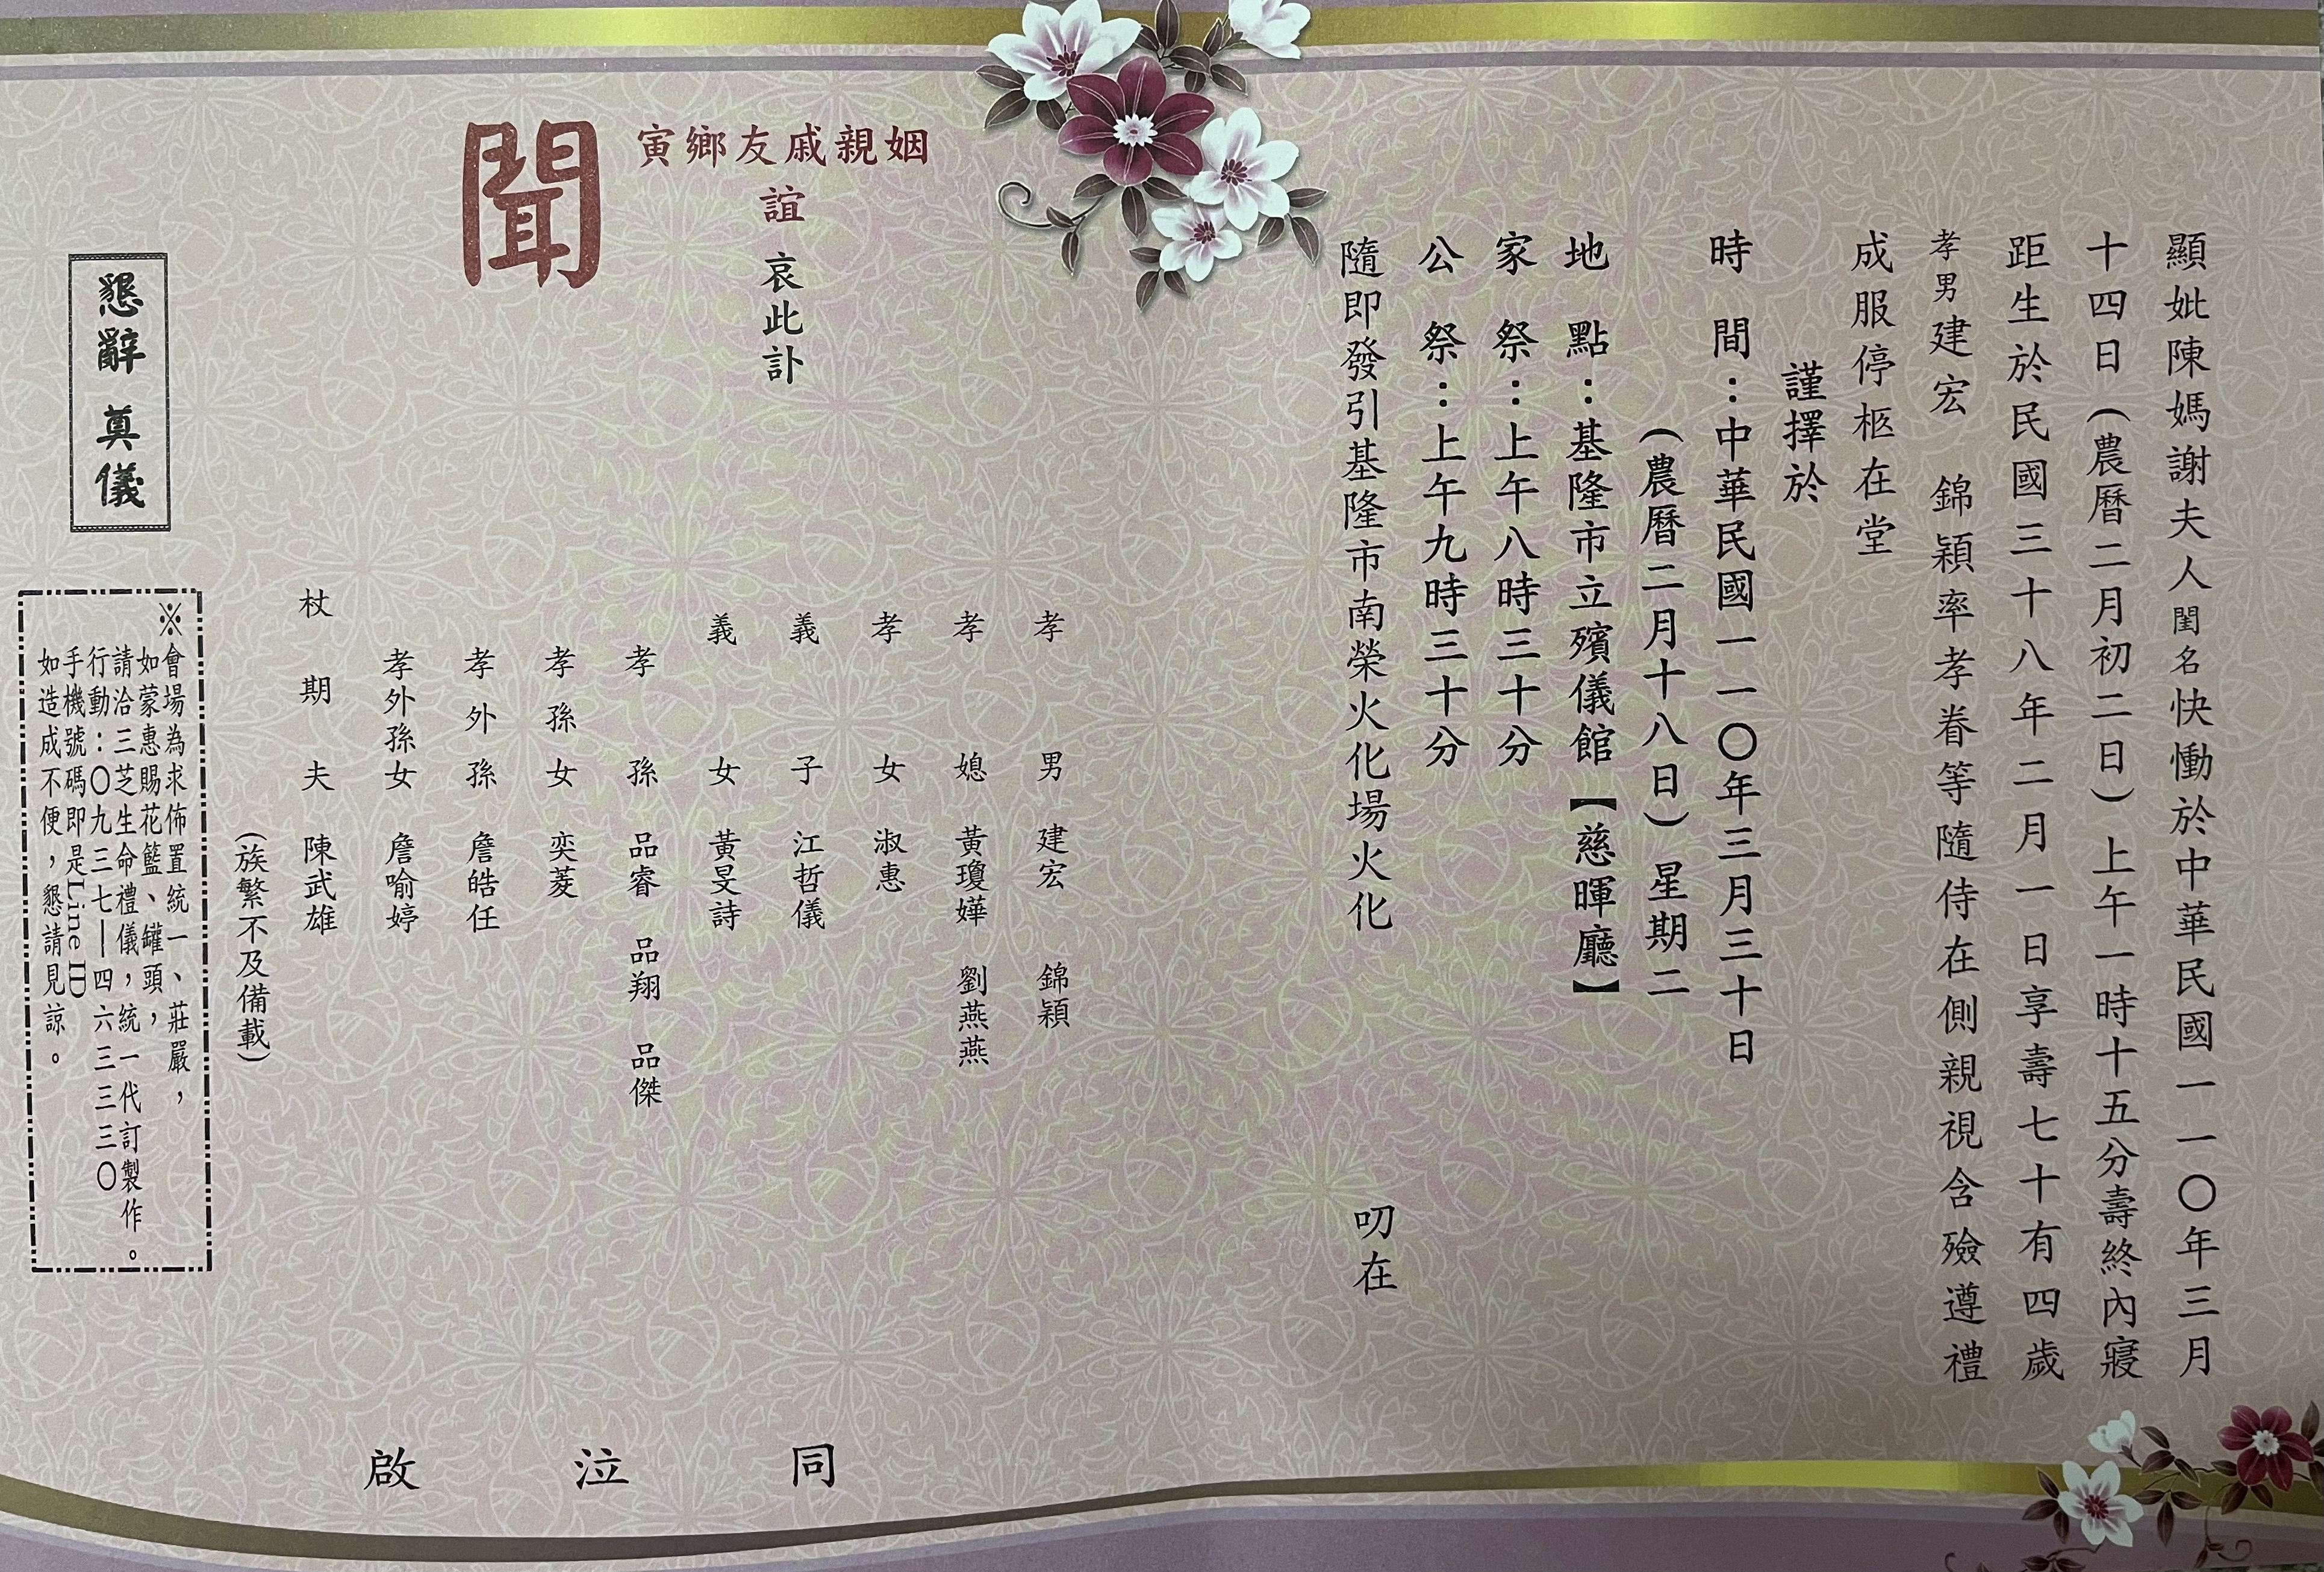 顯妣陳媽謝夫人閨名快慟於中華民國一一〇年三月
十四日(農曆二月初二日)上午一時十五分壽終內寢
距生於民國三十八年二月一日享壽七十有四歲
孝男建宏 錦穎率孝眷等隨侍在側親視含殮遵禮
成服停柩在堂
謹擇於
時 間:中華民國一一〇年三月三十日
(農曆二月十八日)星期二
地 點:基隆市立殯儀館【慈暉廳】
家 祭:上午八時三十分
公 祭:上午九時三十分
隨即發引基隆市南榮火化場火化 叨在
姻親戚友鄉寅
誼 哀此訃
聞
孝 男 建宏 錦穎
孝 媳 黃瓊嬅 劉燕燕
孝 女 淑惠
義 子 江哲儀
義 女 黃旻詩
孝 孫 品睿 品翔 品傑
孝孫女 奕菱
孝外孫 詹皓任
孝外孫女 詹喻婷
杖期夫 陳武雄
(族繁不及備載)
同 泣 啟
懇辭 奠儀
※會場為求佈置統一、莊嚴,
如蒙惠賜花籃、罐頭,
請洽三芝生命禮儀,統一代訂製作。
行動:〇九三七—四六三三三〇
手機號碼即是Line ID
如造成不便,懇請見諒。